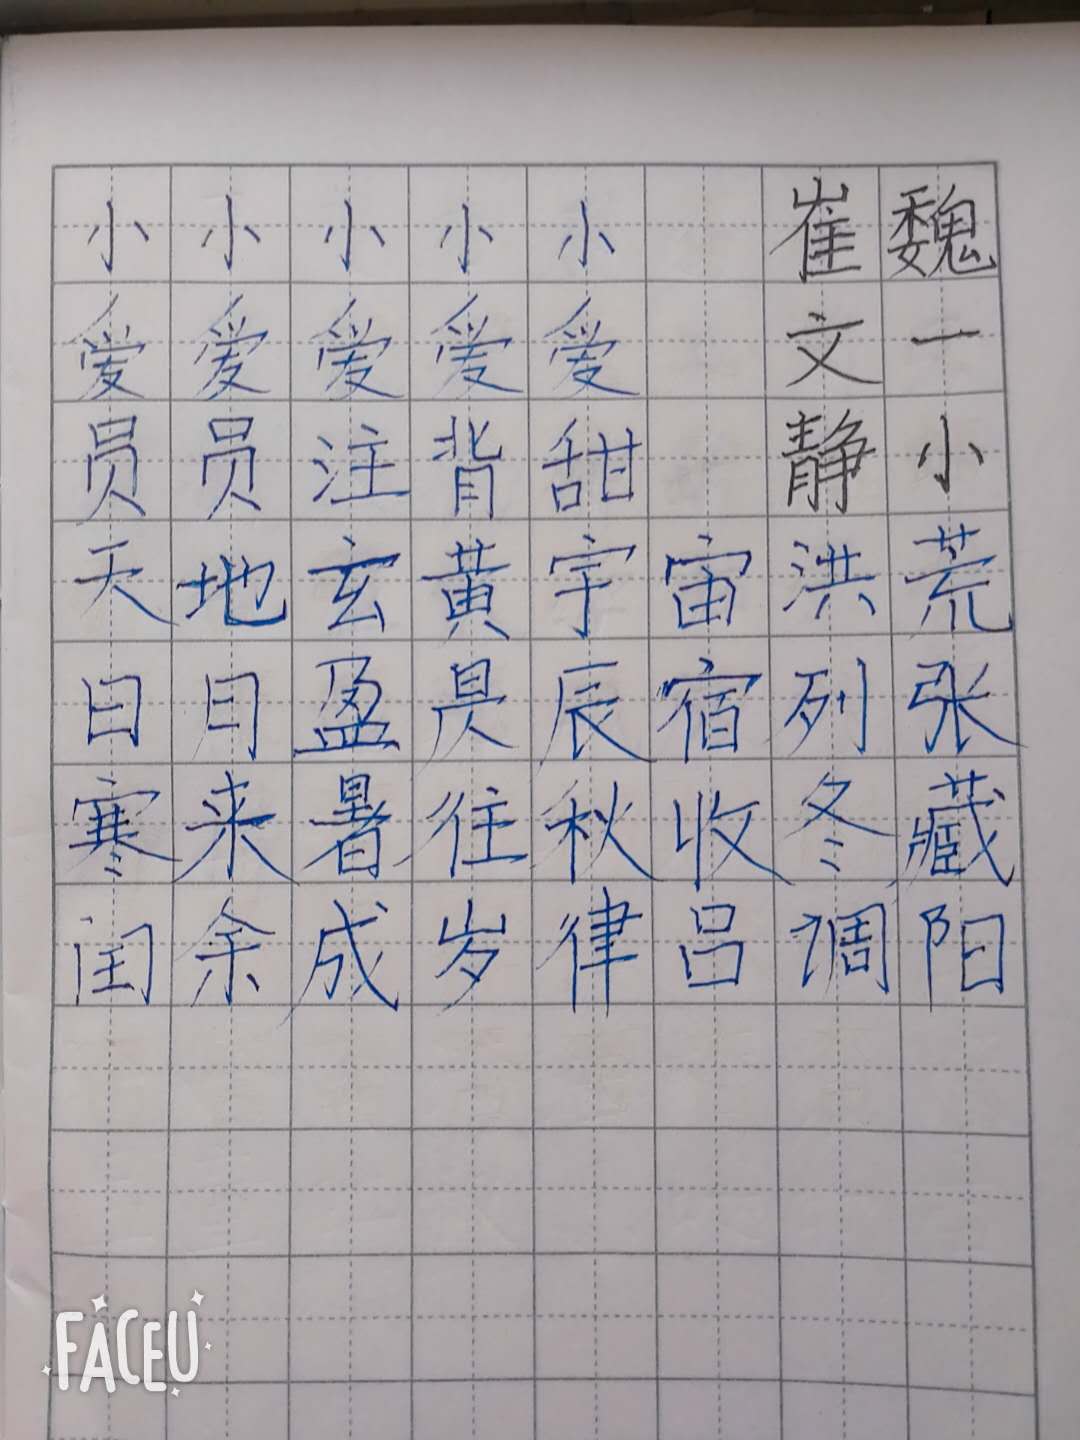 小小小小小 崔魏
爱爱爱爱爱 文一
员员注背甜 静小
天地玄黄宇宙洪荒
日月盈昃辰宿列张
寒来暑往秋收冬藏
闰余成岁律吕调阳
FACEU